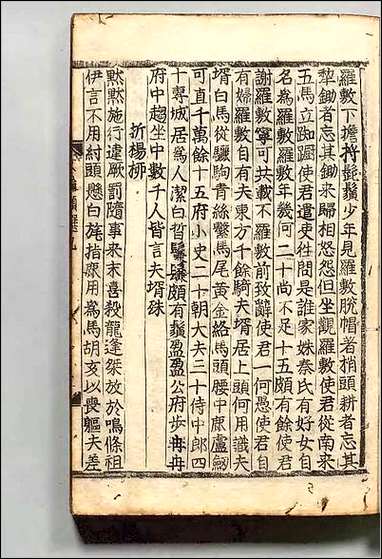 羅敷下擔捋髭鬚少年見羅敷脫帽者捎頭耕者忘其
犂鋤者忘其鋤来歸相怒怨但坐觀羅敷使君從南来
五馬立踟躕使君遣使往問是誰家姝秦氏有好女自
名為羅敷羅敷年幾何二十尚不足十五頗有餘使君
謝羅敷寧可共載不羅敷前致辭使君一何愚使君自
有婦羅敷自有夫東方千餘騎夫壻居上頭何用識夫
壻白馬從驪駒青絲繫馬尾黃金絡馬頭腰中鹿盧劔
可直千萬餘十五府小史二十朝大夫三十侍中郎四
十專城居為人潔白皙鬑鬑頗有鬚盈盈公府步冉冉
府中趨坐中數千人皆言夫壻殊
折楊柳
黙黙施行違厥罰隨事来末喜殺龍逄桀放於鳴條祖
伊言不用紂頭懸白旄指鹿用為馬胡亥以喪軀夫差